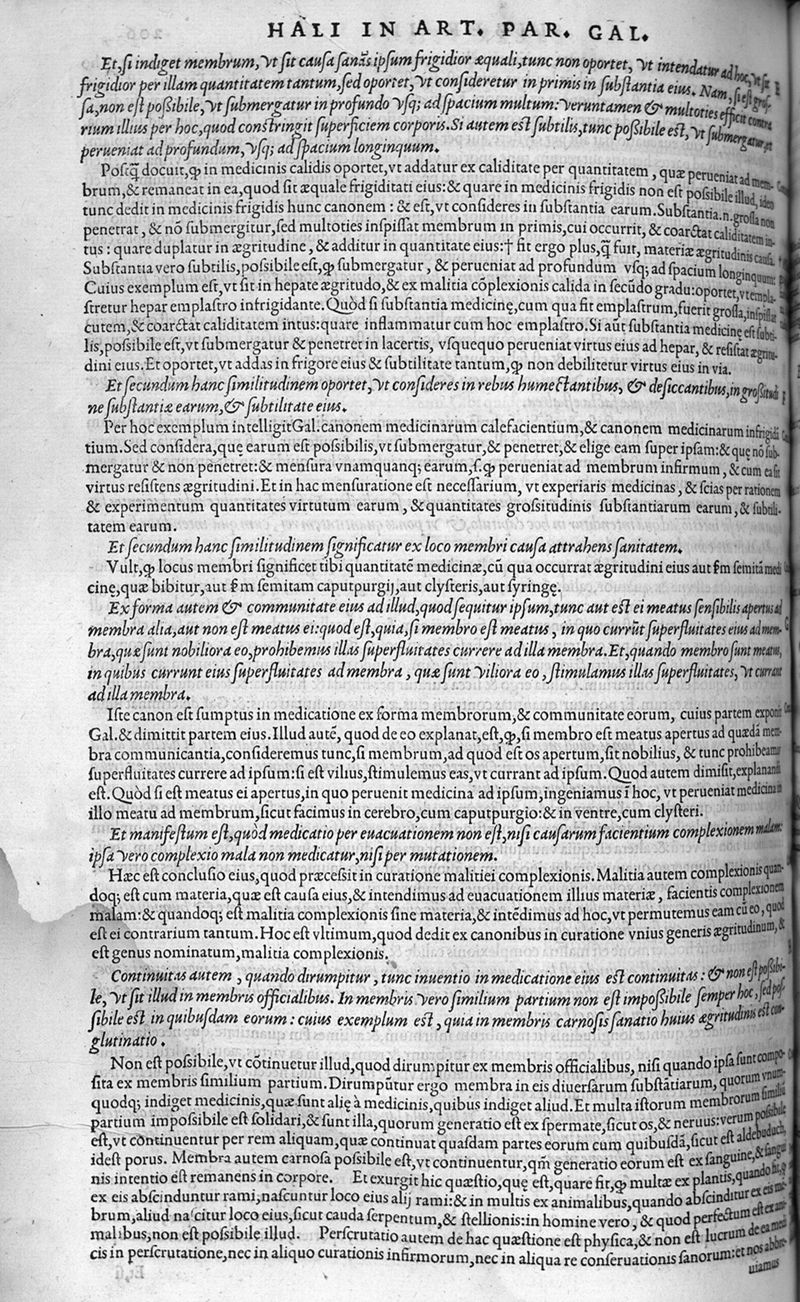 HALI IN ART. PAR. GAL.
Et, si indiget membrum, vt sit causa sanās ipsum frigidior æquali, tunc non oportet, vt intendatur ad hoc, vt sit
frigidior per illam quantitatem tantum, sed oportet, vt consideretur in primis in substantia eius. Nam, si est gros
sa, non est possibile, vt submergatur in profundo vsq; ad spacium multum: veruntamen & multoties efficit contra
rium illius per hoc, quod constringit superficiem corporis. Si autem est subtilis, tunc possibile est, vt submergatur, et
perueniat ad profundum, vsq; ad spacium longinquum.
Posq̃ docuit, ꝙ in medicinis calidis oportet, vt addatur ex caliditate per quantitatem, quæ perueniat ad mem-
brum, & remaneat in ea, quod sit æquale frigiditati eius: & quare in medicinis frigidis non est possibile illud, ideo
tunc dedit in medicinis frigidis hunc canonem: & est, vt consideres in substantia earum. Substantia .n. grossa non
penetrat, & nō submergitur, sed multoties inspissat membrum in primis, cui occurrit, & coarctat caliditatem in-
tus: quare duplatur in ægritudine, & additur in quantitate eius: † fit ergo plus, q̃ fuit, materiæ ægritudinis causa.
Substantia vero subtilis, possibile est, ꝙ submergatur, & perueniat ad profundum vsq; ad spacium longinquum:
Cuius exemplum est, vt sit in hepate ægritudo, & ex malitia cōplexionis calida in secūdo gradu: oportet, vt empla-
stretur hepar emplastro infrigidante. Quòd si substantia medicinę, cum qua fit emplastrum, fuerit grossa, inspissat
cutem, & coarctat caliditatem intus: quare inflammatur cum hoc emplastro. Si aūt substantia medicinę est subti-
lis, possibile est, vt submergatur & penetret in lacertis, vsquequo perueniat virtus eius ad hepar, & resistat ægritu-
dini eius. Et oportet, vt addas in frigore eius & subtilitate tantum, ꝙ non debilitetur virtus eius in via.
Et secundum hanc similitudinem oportet, vt consideres in rebus humectantibus, & desiccantibus, in grossitudi
ne substantiæ earum, & subtilitate eius.
Per hoc exemplum intelligit Gal. canonem medicinarum calefacientium, & canonem medicinarum infrigidi
tium. Sed considera, quę earum est possibilis, vt submergatur, & penetret, & elige eam super ipsam: & quę nō sub-
mergatur & non penetret: & mensura vnamquanq; earum, s. ꝙ perueniat ad membrum infirmum, & cum ea sit
virtus resistens ægritudini. Et in hac mensuratione est necessarium, vt experiaris medicinas, & scias per rationem
& experimentum quantitates virtutum earum, & quantitates grossitudinis substantiarum earum, & subtili-
tatem earum.
Et secundum hanc similitudinem significatur ex loco membri causa attrahens sanitatem.
Vult, ꝙ locus membri significet tibi quantitatē medicinæ, cū qua occurrat ægritudini eius aut f̃m semitā medi
cinę, quæ bibitur, aut f̃m semitam caputpurgij, aut clysteris, aut syringę.
Ex forma autem & communitate eius ad illud, quod sequitur ipsum, tunc aut est ei meatus sensibilis apertus ad
membra alia, aut non est meatus ei: quod est, quia, si membro est meatus, in quo currūt superfluitates eius ad mem-
bra, quæ sunt nobiliora eo, prohibemus illas superfluitates currere ad illa membra. Et, quando membro sunt meatus,
in quibus currunt eius superfluitates ad membra, quæ sunt viliora eo, stimulamus illas superfluitates, vt currant
ad illa membra.
Iste canon est sumptus in medicatione ex forma membrorum, & communitate eorum, cuius partem exponit
Gal. & dimittit partem eius. Illud autē, quod de eo explanat, est, ꝙ, si membro est meatus apertus ad quædā mem-
bra communicantia, consideremus tunc, si membrum, ad quod est os apertum, sit nobilius, & tunc prohibeamus
superfluitates currere ad ipsum: si est vilius, stimulemus eas, vt currant ad ipsum. Quod autem dimisit, explanandi
est. Quòd si est meatus ei apertus, in quo peruenit medicina ad ipsum, ingeniamus ī hoc, vt perueniat medicina in
illo meatu ad membrum, sicut facimus in cerebro, cum caputpurgio: & in ventre, cum clysteri.
Et manifestum est, quòd medicatio per euacuationem non est, nisi causarum facientium complexionem malam:
ipsa vero complexio mala non medicatur, nisi per mutationem.
Hæc est conclusio eius, quod præcessit in curatione malitiei complexionis. Malitia autem complexionis quan-
doq; est cum materia, quæ est causa eius, & intendimus ad euacuationem illius materiæ, facientis complexionem
malam: & quandoq; est malitia complexionis sine materia, & intēdimus ad hoc, vt permutemus eam cū eo, quod
est ei contrarium tantum. Hoc est vltimum, quod dedit ex canonibus in curatione vnius generis ægritudinum, &
est genus nominatum, malitia complexionis.
Continuitas autem, quando dirumpitur, tunc inuentio in medicatione eius est continuitas: & non est possibi-
le, vt sit illud in membris officialibus. In membris vero similium partium non est impossibile semper hoc, sed pos-
sibile est in quibusdam eorum: cuius exemplum est, quia in membris carnosis sanatio huius ægritudinis est con-
glutinatio.
Non est possibile, vt cōtinuetur illud, quod dirumpitur ex membris officialibus, nisi quando ipsa sunt compo-
sita ex membris similium partium. Dirumpūtur ergo membra in eis diuersarum substātiarum, quorum vnum-
quodq; indiget medicinis, quæ sunt alię à medicinis, quibus indiget aliud. Et multa istorum membrorum similiū
partium impossibile est solidari, & sunt illa, quorum generatio est ex spermate, sicut os, & neruus: verum possibile
est, vt continuentur per rem aliquam, quæ continuat quasdam partes eorum cum quibusdā, sicut est aldebaduch,
idest porus. Membra autem carnosa possibile est, vt continuentur, qm̃ generatio eorum est ex sanguine, & sangui
nis intentio est remanens in corpore. Et exurgit hic quæstio, quę est, quare fit, ꝙ multæ ex plantis, quando hic, &
ex eis abscinduntur rami, nascuntur loco eius alij rami: & in multis ex animalibus, quando abscinditur ex eis mem
brum, aliud nascitur loco eius, sicut cauda serpentum, & stellionis: in homine vero, & quod perfectum est ex ani-
malibus, non est possibile illud. Perscrutatio autem de hac quæstione est physica, & non est lucrum de ea medi
cis in perscrutatione, nec in aliquo curationis infirmorum, nec in aliqua re conseruationis sanorum: et nos abbre-
uiamus